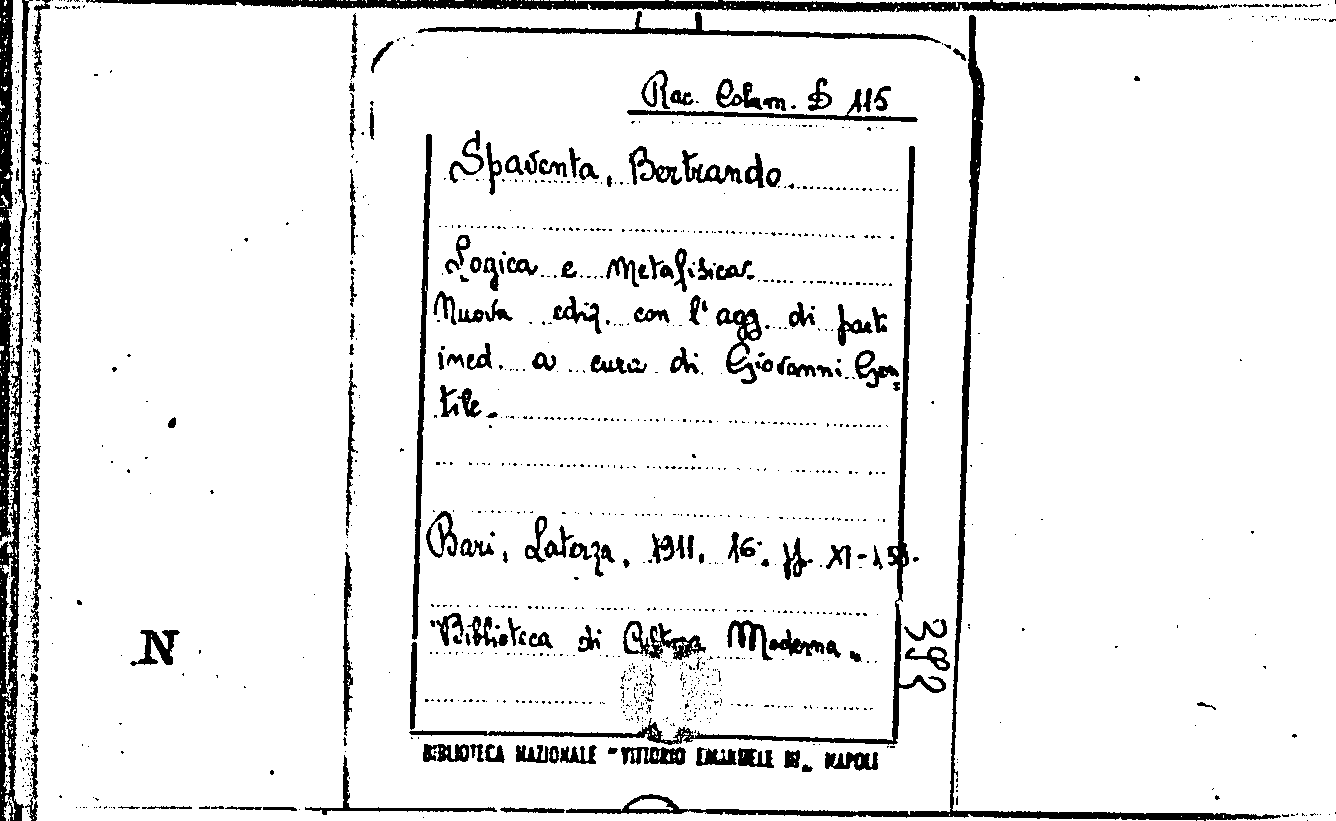 Rac. Colam. D 115
Spaventa, Bertrando.
Logica e Metafisica.
Nuova ediz. con l'agg. di parti
ined. a cura di Giovanni Gen=
tile.
Bari, Laterza, 1911. 16°. pp. XI-
"Biblioteca di Cultura Moderna„
N
BIBLIOTECA NAZIONALE "VITTORIO EMANUELE III„ NAPOLI